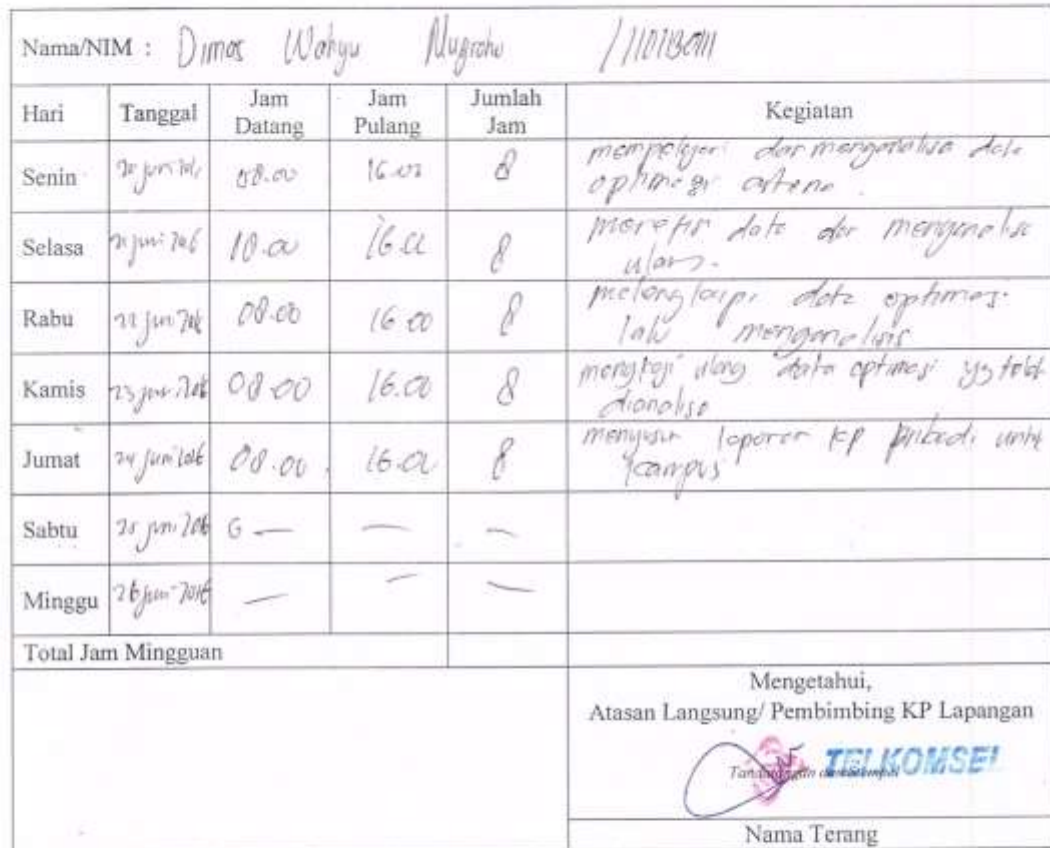 Nama/NIM : Dimas Wahyu Nugroho /
Hari Tanggal Jam Datang Jam Pulang Jumlah Jam Kegiatan
Senin 20 juni 08.00 16.00 8 mempelajari dan menganalisa data
optimasi antena.
Selasa 21 juni 2016 10.00 16.00 8 data dan menganalisa
ulang.
Rabu 22 juni 2016 08.00 16.00 8 melengkapi data optimasi
lalu menganalisis
Kamis 23 juni 2016 08.00 16.00 8 mengkaji ulang data optimasi yg telah
dianalisa
Jumat 24 juni 2016 08.00 16.00 8 menyusun laporan KP pribadi untuk
kampus
Sabtu 25 juni 2016 — — —
Minggu 26 juni 2016 — — —
Total Jam Mingguan
Mengetahui,
Atasan Langsung/ Pembimbing KP Lapangan
TELKOMSEL
Nama Terang